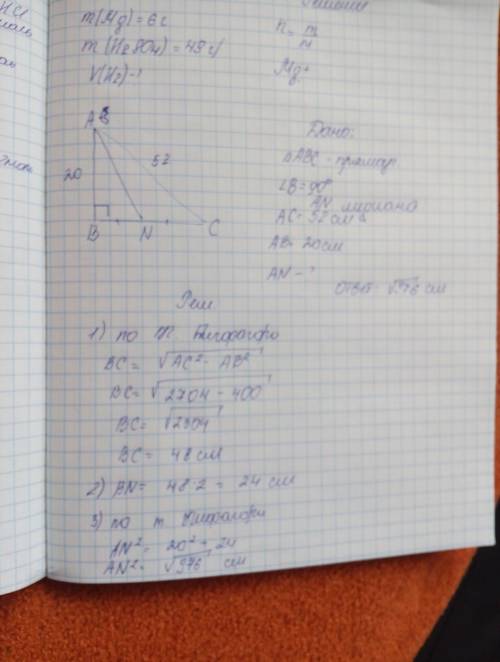 HCl
m(Mg) = 6 г
n = m/M
m(H2SO4) = 49 г
V(H2) - ?
Mg+
A
20
52
B N C
Дано:
△ABC - прямоуг.
∠B = 90°
AN медиана
AC = 52 см
AB = 20 см
AN - ?
Ответ: √976 см
Реш.
1) по т. Пифагора
BC = √AC² - AB²
BC = √2704 - 400
BC = √2304
BC = 48 см
2) BN = 48:2 = 24 см
3) по т. Пифагора
AN² = 20² + 24
AN² = √976 см